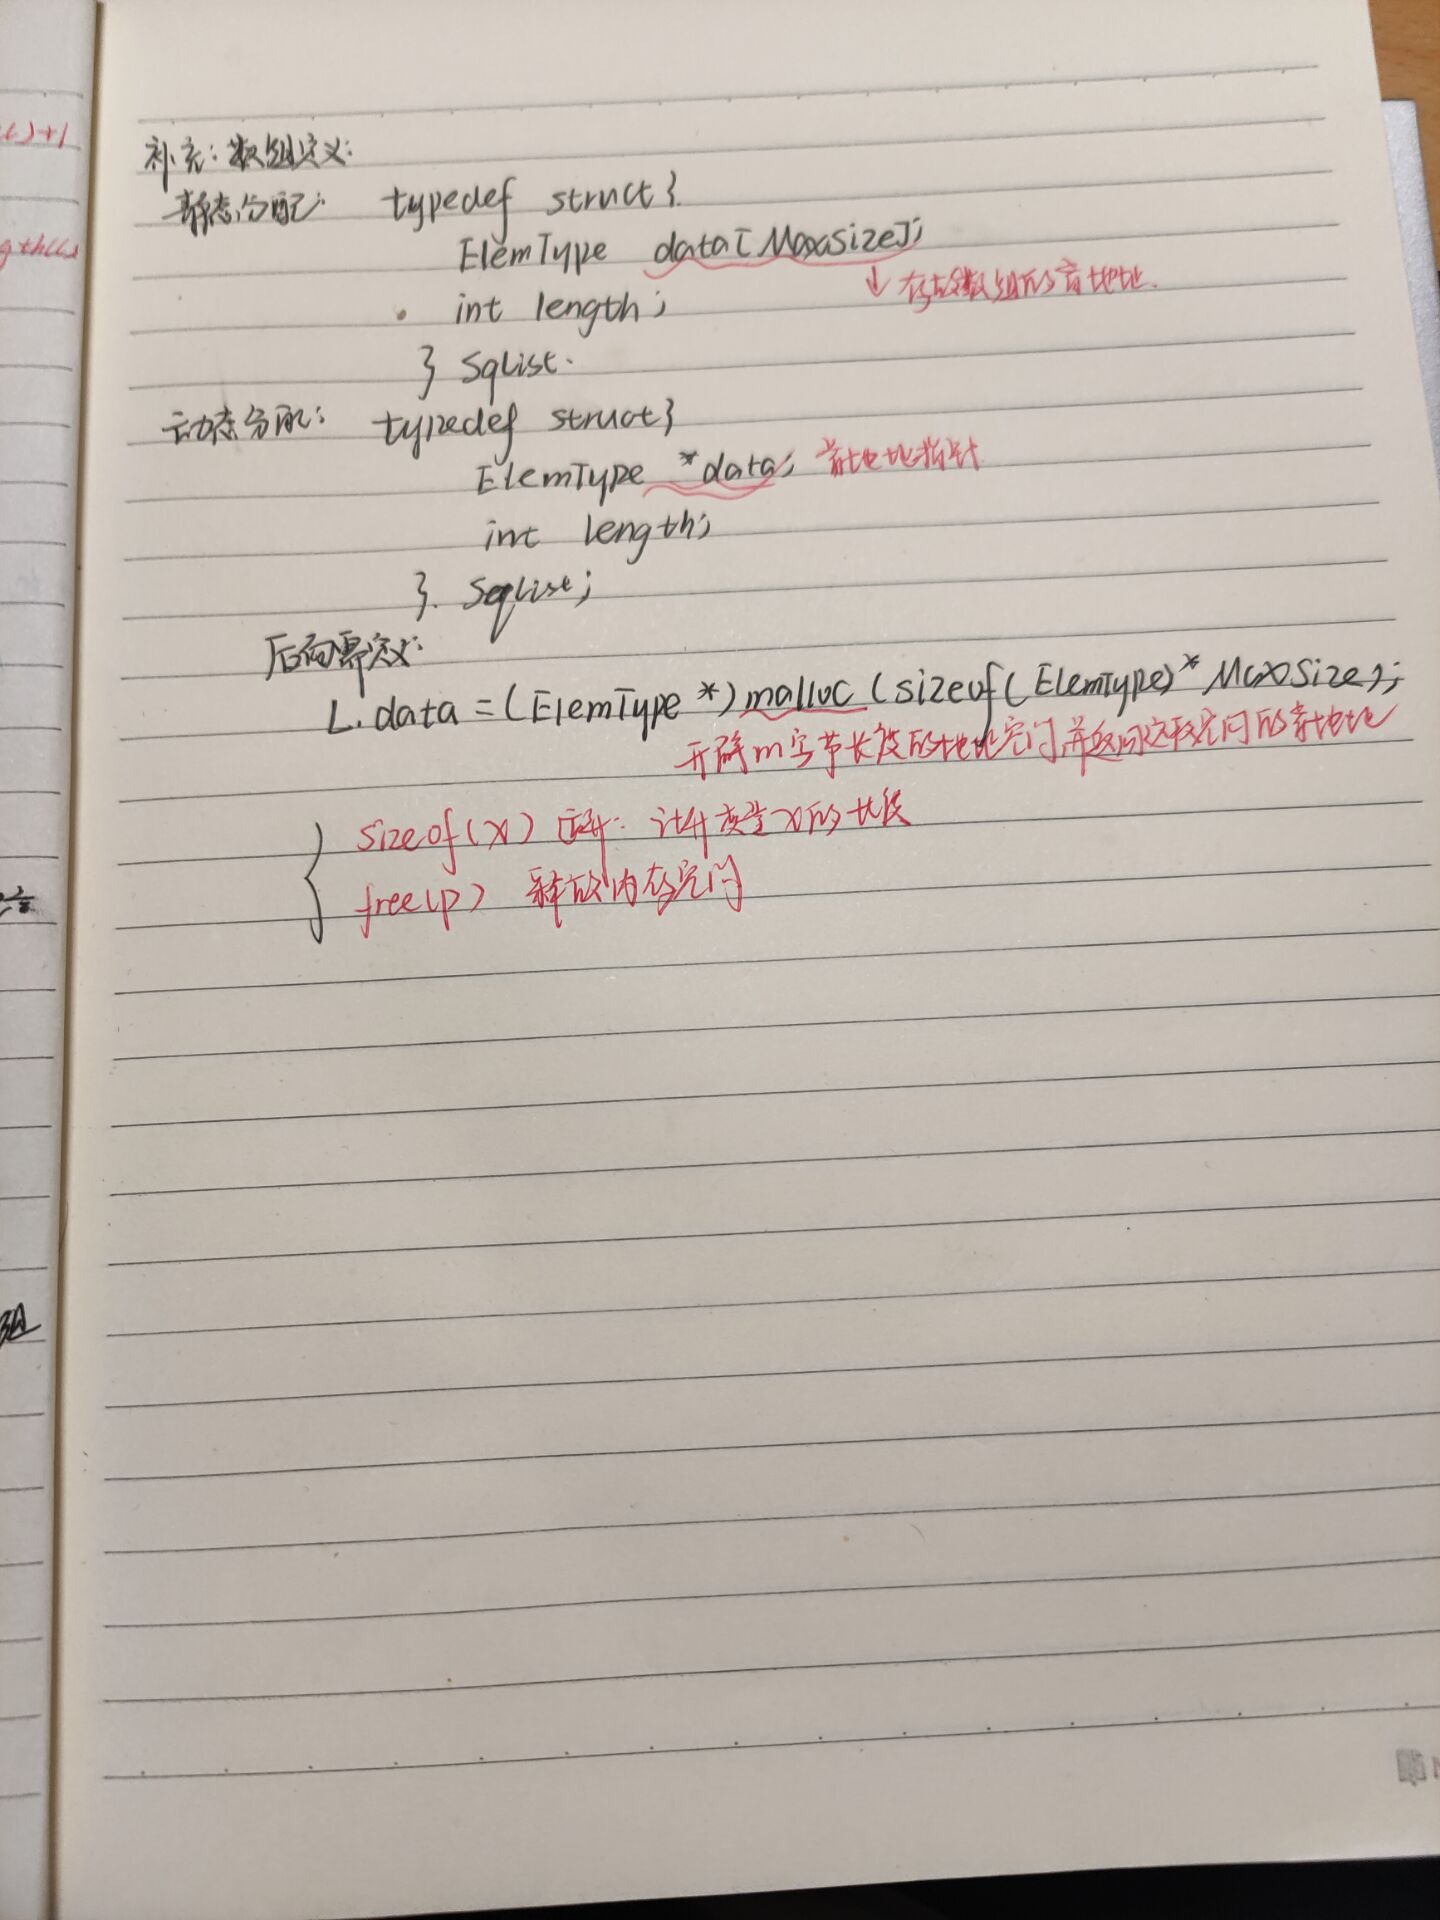 补充:数组定义:
静态分配: typedef struct{
ElemType data[MaxSize];
↓存放数组的首地址.
int length;
} SqList.
动态分配: typedef struct{
ElemType *data; 首地址指针
int length;
}. SqList;
后面需定义:
L.data=(ElemType *)malloc(sizeof(ElemType)*MaxSize);
开辟m字节长度的地址空间,并返回这段空间的首地址
sizeof(x) 运算: 计算变量x的长度
free(p) 释放内存空间